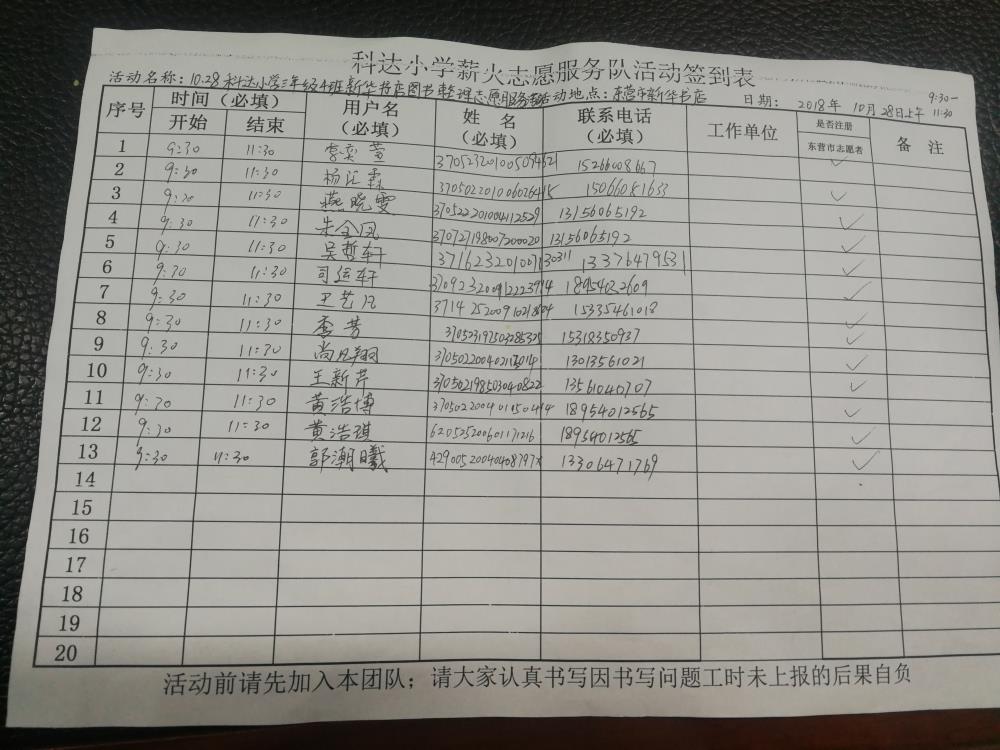 科达小学薪火志愿服务队活动签到表
活动名称：10.28科达小学二年级4班新华书店图书整理志愿服务活动 活动地点：东营市新华书店 日期：2018年10月28日上午 9:30-11:30
序号 时间（必填） 用户名（必填） 姓名（必填） 联系电话（必填） 工作单位 是否注册东营市志愿者 备注
开始 结束
1 9:30 11:30 李奕萱 15266008667 ✓
2 9:30 11:30 杨汇霖 15066081633 ✓
3 9:30 11:30 燕晓雯 370522201004112529 13156065192 ✓
4 9:30 11:30 朱全凤 370727198007200020 13156065192 ✓
5 9:30 11:30 吴哲轩 13376479531 ✓
6 9:30 11:30 司运轩 18954022609 ✓
7 9:30 11:30 王艺凡 15335461018 ✓
8 9:30 11:30 李芳 370523197503285325 15318350937 ✓
9 9:30 11:30 尚凡翔 13013561021 ✓
10 9:30 11:30 王新芹 370502198503040822 13561040707 ✓
11 9:30 11:30 黄浩博 18954012565 ✓
12 9:30 11:30 黄浩琪 620525200601171216 18954012565 ✓
13 9:30 11:30 郭潮曦 42900520040408797X 13306471769 ✓
14
15
16
17
18
19
20
活动前请先加入本团队；请大家认真书写因书写问题工时未上报的后果自负